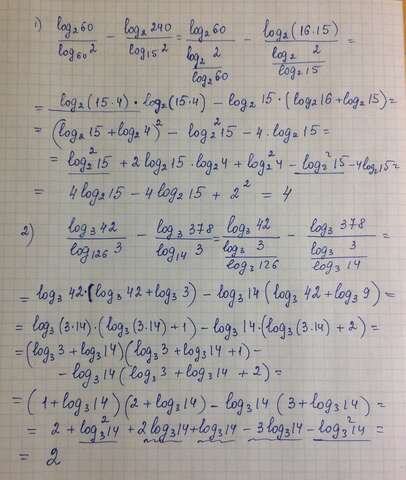 1) log₂60/log₆₀2 − log₂240/log₁₅2 = log₂60/(log₂2/log₂60) − log₂(16·15)/(log₂2/log₂15) =
= log₂(15·4)·log₂(15·4) − log₂15·(log₂16+log₂15) =
= (log₂15 + log₂4)² − log₂²15 − 4·log₂15 =
= log₂²15 + 2log₂15·log₂4 + log₂²4 − log₂²15 − 4log₂15 =
= 4log₂15 − 4log₂15 + 2² = 4
2) log₃42/log₁₂₆3 − log₃378/log₁₄3 = log₃42/(log₃3/log₃126) − log₃378/(log₃3/log₃14) =
= log₃42·(log₃42 + log₃3) − log₃14(log₃42 + log₃9) =
= log₃(3·14)·(log₃(3·14) + 1) − log₃14·(log₃(3·14) + 2) =
= (log₃3 + log₃14)(log₃3 + log₃14 + 1) −
− log₃14(log₃3 + log₃14 + 2) =
= (1 + log₃14)(2 + log₃14) − log₃14(3 + log₃14) =
= 2 + log₃²14 + 2log₃14 + log₃14 − 3log₃14 − log₃²14 =
= 2